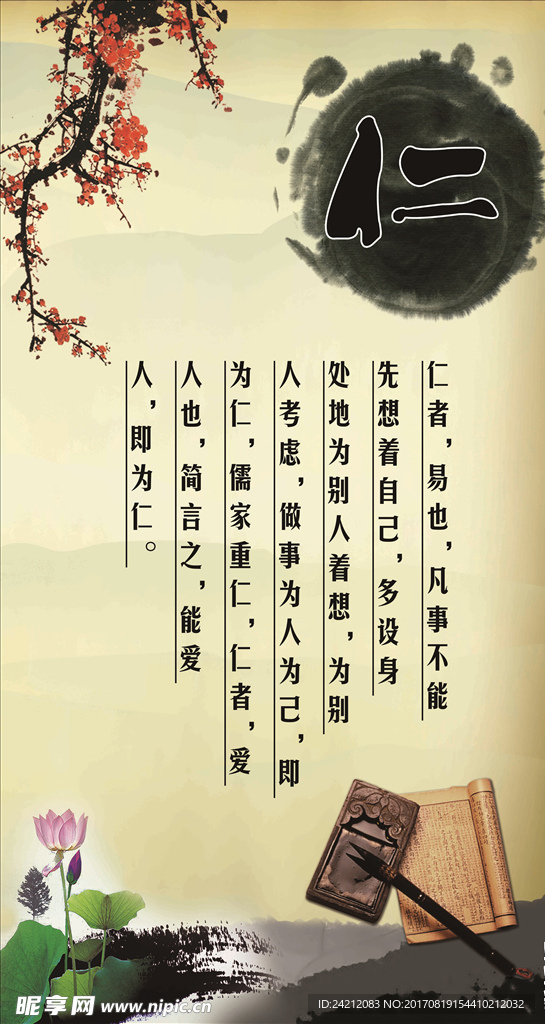 仁
仁者，易也，凡事不能
先想着自己，多设身
处地为别人着想，为别
人考虑，做事为人为己，即
为仁，儒家重仁，仁者，爱
人也，简言之，能爱
人，即为仁。
昵享网 www.nipic.cn
ID:24212083 NO:20170819154410212032